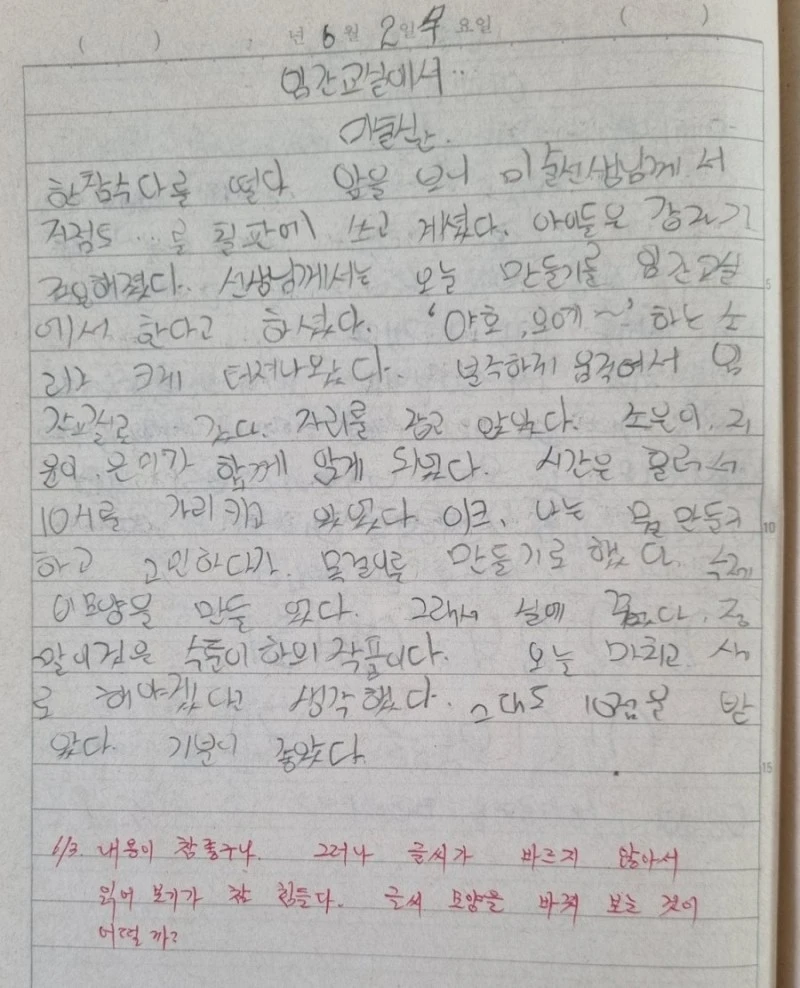 ( ) 년 6월 2일 목요일 ( )
임간교실에서..
한참수다를 떨다 앞을 보니 미술선생님께서
칠판에 쓰고 계셨다. 아이들은 갑자기
조용해졌다. 선생님께서는 오늘 만들기를 임간교실
에서 한다고 하셨다. '야호, ~' 하는 소
리가 크게 터져나왔다. 움직여서 임
간교실로 갔다. 자리를 잡고 앉았다.
함께 앉게 되었다. 시간은 흘러서
10시를 가리키고 있었다. 이크, 나는 뭘 만든지
하고 고민하다가 목걸이를 만들기로 했다.
모양을 만들었다. 그래서 실에 꿨다. 정
말이것은 작품이다. 오늘 마치고 새
로 해야겠다고 생각했다. 그래도 10점을 받
았다. 기분이 좋았다
6/3. 내용이 참 좋구나. 그러나 글씨가 바르지 않아서
읽어 보기가 참 힘들다. 글씨 모양을 바꿔 보는 것이
어떨까?
5
10
15